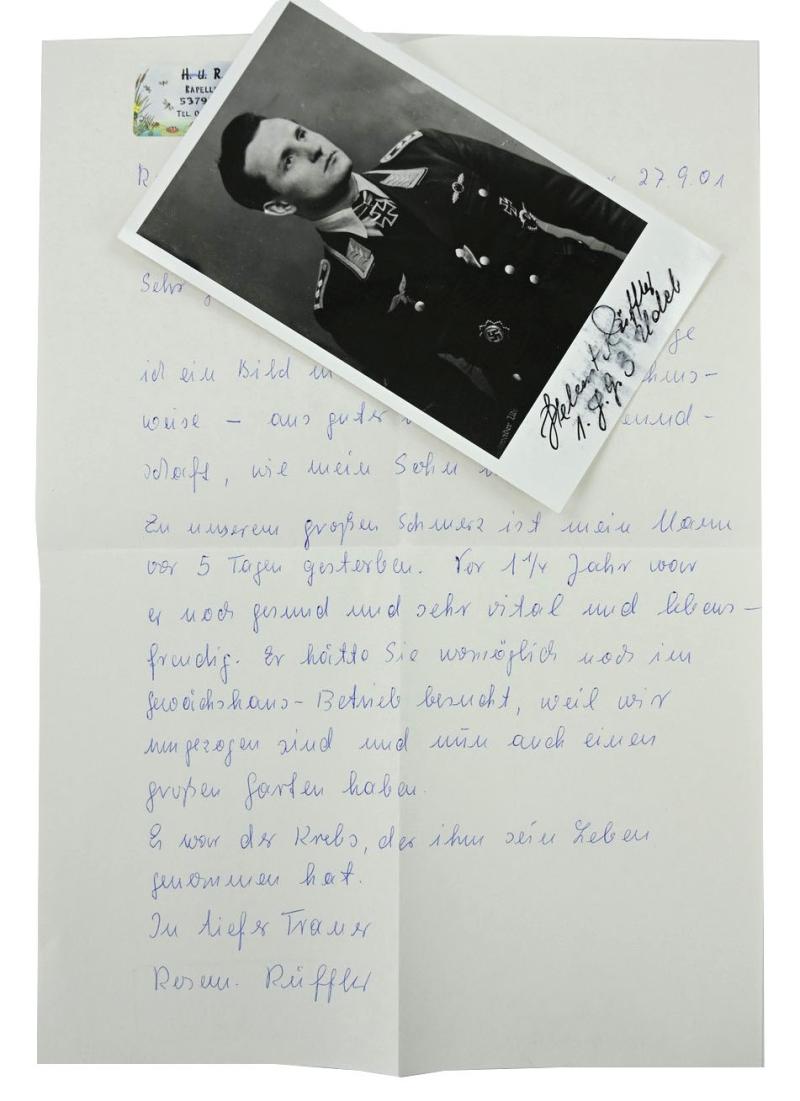 H. U. R
KAPELL
5379
TEL. 0
27.9.01
Sehr
ge
ich ein Bild
weise – aus guter
eund-
schaft, wie mein Sohn
Zu unserem großen Schmerz ist mein Mann
vor 5 Tagen gestorben. Vor 1 1/4 Jahr war
er noch gesund und sehr vital und lebens-
freudig. Er hätte Sie womöglich noch im
Gewächshaus-Betrieb besucht, weil wir
umgezogen sind und nun auch einen
großen Garten haben.
Es war der Krebs, der ihm sein Leben
genommen hat.
In tiefer Trauer
Rosem. Rüffler
Helmut Rüffler
1. J.G. 3 Udet